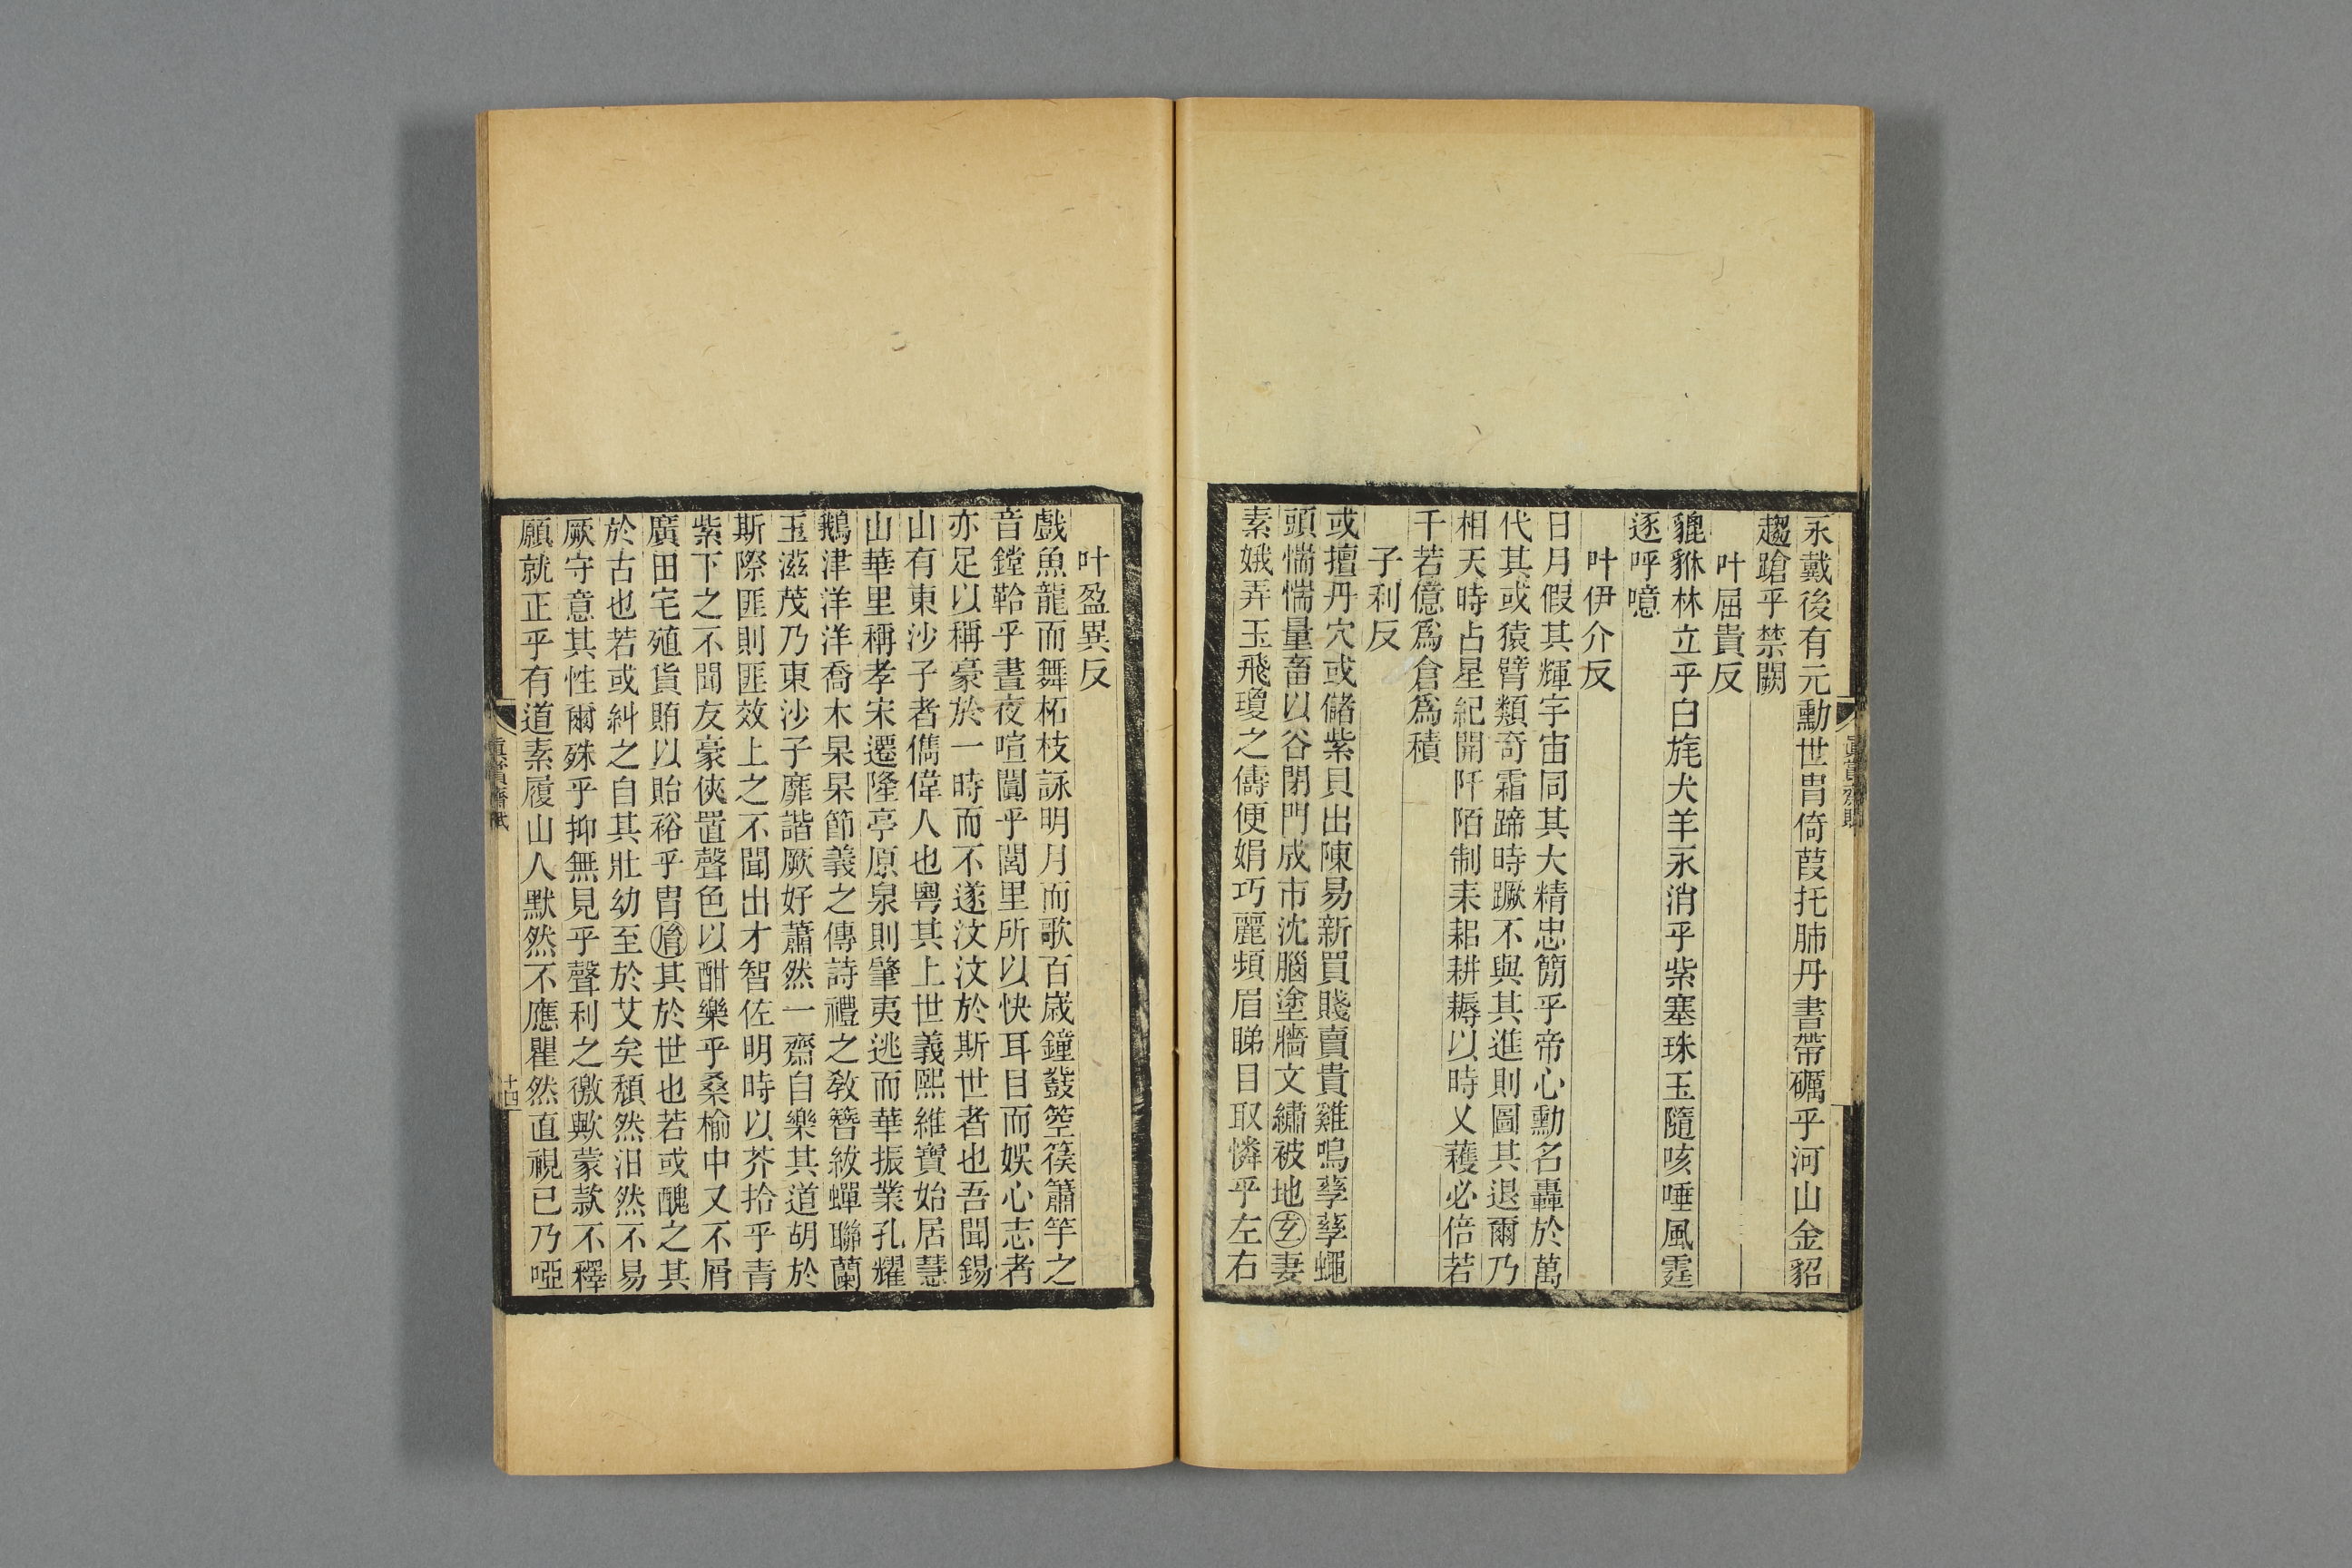 永戴後有元勳世胄倚葭托肺丹書帶礪乎河山金貂
趨蹌乎禁闕
叶屈貴反
貔貅林立乎白旄犬羊永消乎紫塞珠玉隨咳唾風霆
逐呼噫
叶伊介反
日月假其輝宇宙同其大精忠簡乎帝心勳名轟於萬
代其或猿臂類奇霜蹄時蹶不與其進則圖其退爾乃
相天時占星紀開阡陌制耒耜耕耨以時乂穫必倍若
千若億爲倉爲積
子利反
或擅丹穴或儲紫貝出陳易新買賤賣貴雞鳴孳孳蠅
頭惴惴量畜以谷閉門成市沈腦塗牆文繡被地㊛妻
素娥弄玉飛瓊之儔便娟巧麗頻眉睇目取憐乎左右
叶盈異反
戲魚龍而舞柘枝詠明月而歌百歲鐘鼓箜篌簫竽之
音鏜鞈乎晝夜喧闐乎閭里所以快耳目而娛心志者
亦足以稱豪於一時而不遂汶汶於斯世者也吾聞錫
山有東沙子者儁偉人也粵其上世義熙維寶始居慧
山華里稱孝宋遷隆亭原泉則肇夷逃而華振業孔耀
鵝津洋洋喬木杲杲節義之傳詩禮之敎簪紱蟬聯蘭
玉滋茂乃東沙子靡諧厥好蕭然一齋自樂其道胡於
斯際匪則匪效上之不聞出才智佐明時以芥拾乎青
紫下之不聞友豪俠罝聲色以酣樂乎桑榆中又不屑
廣田宅殖貨賄以貽裕乎胄其於世也若或醜之其
於古也若或糾之自其壯幼至於艾矣頹然汨然不易
厥守意其性爾殊乎抑無見乎聲利之徼歟蒙欵不釋
願就正乎有道素履山人默然不應瞿然直視已乃啞
眞賞齋賦
十四